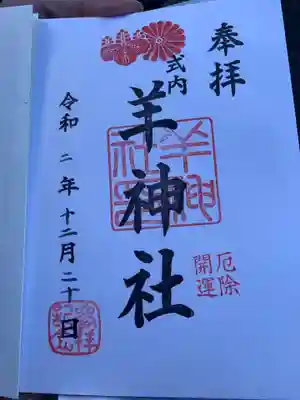 奉拝
式内
羊神社
羊神社
厄除
開運
令和二年十二月二十日